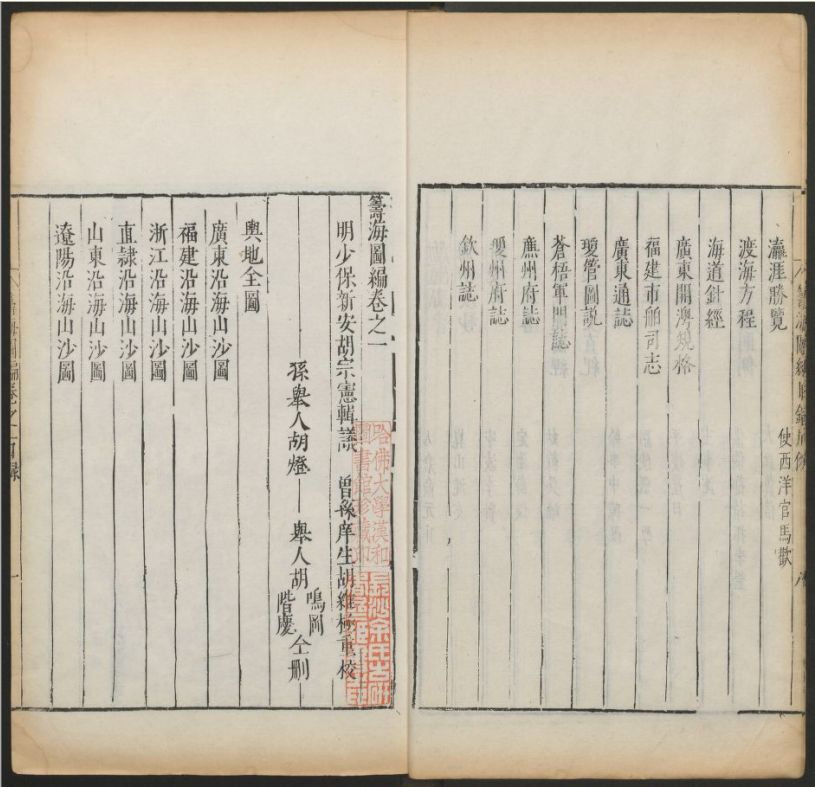 瀛涯勝覽 使西洋官馬歡
渡海方程
海道針經
廣東開灣規格
福建市舶司志
廣東通誌
瓊管圖說
蒼梧軍門誌
廉州府誌
瓊州府誌
欽州誌
籌海圖編卷之一
明少保新安胡宗憲輯議 曾孫庠生胡維極重校
孫舉人胡燈 舉人胡鳴岡階慶仝刪
輿地全圖
廣東沿海山沙圖
福建沿海山沙圖
浙江沿海山沙圖
直隸沿海山沙圖
山東沿海山沙圖
遼陽沿海山沙圖
哈佛大學漢和
圖書館珍藏印